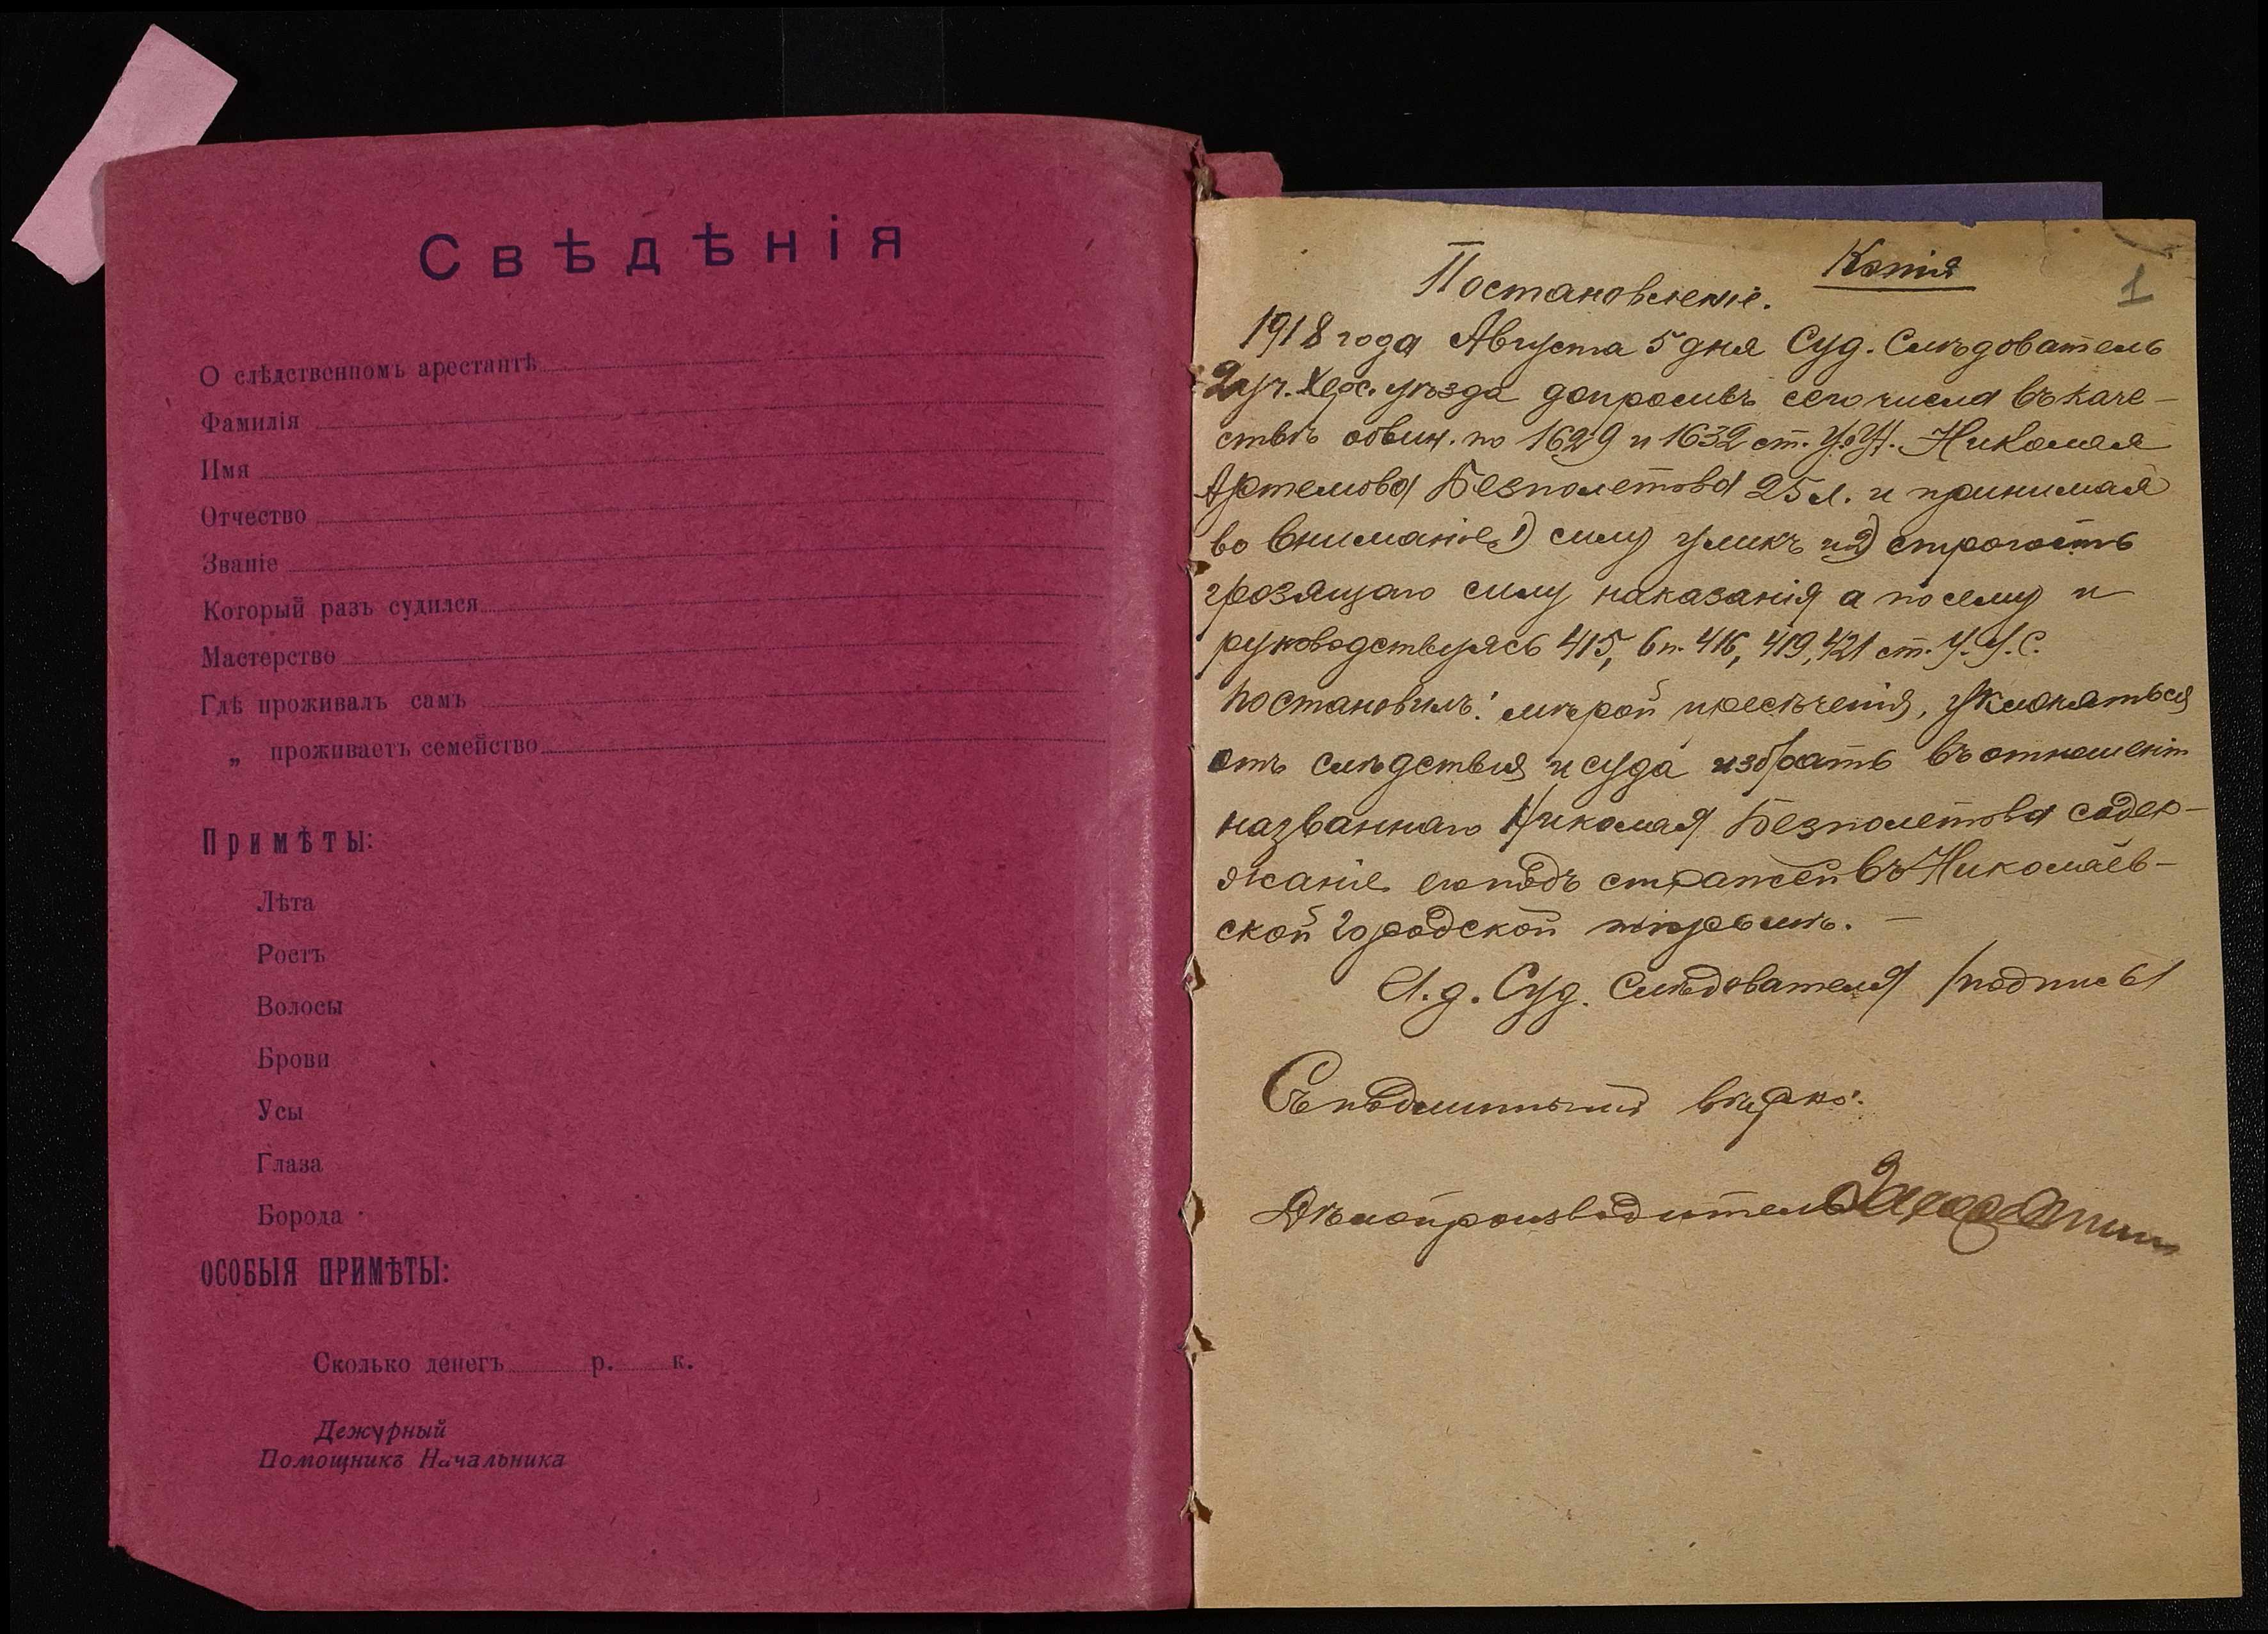 Свѣдѣнія
О слѣдственномъ арестантѣ
Фамилія
Имя
Отчество
Званіе
Который разъ судился
Мастерство
Гдѣ проживалъ самъ
„ проживаетъ семейство
Примѣты:
Лѣта
Ростъ
Волосы
Брови
Усы
Глаза
Борода
ОСОБЫЯ ПРИМѢТЫ:
Сколько денегъ р. к.
Дежурный
Помощникъ Начальника
Копія
1
Постановленіе.
1918 года Августа 5 дня Суд. Слѣдователь
2 уч. Херс. уѣзда допросивъ сего числа въ каче-
ствѣ обвин. по 1629 и 1632 ст. У. о Н. Николая
Артемова Безполетова 25 л. и принимая
во вниманіе 1) силу уликъ и 2) строгость
грозящаго силу наказанія а посему и
руководствуясь 415, 6 п. 416, 419, 421 ст. У. У. С.
постановилъ: мѣрой пресѣченія, уклоняться
отъ слѣдствія и суда избрать въ отношеніи
названнаго Николая Безполетова содер-
жаніе его подъ стражей въ Николаев-
ской городской тюрьмѣ. —
И. д. Суд. Слѣдователя /подпись/
Съ подлиннымъ вѣрно:
Дѣлопроизводитель